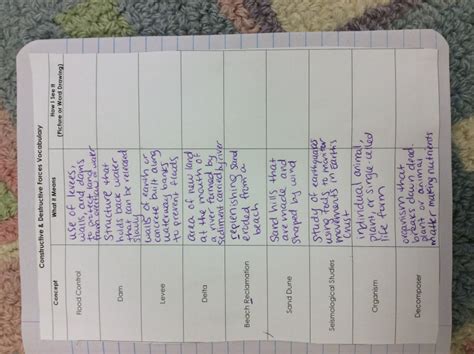 Constructive & Destructive Forces Vocabulary
Concept
What it Means
How I See it
(Picture or Word Drawing)
Flood Control
use of levees,
walls, and dams
water
Dam
structure that
holds back water
that can be released
Levee
walls of earth or
concrete along
waterway banks
to prevent floods
Delta
area of new land
at the mouth of
a river formed by
sediment carried by river
Beach Reclamation
replenishing sand
eroded from a
beach
Sand Dune
Sand hills that
are made and
shaped by wind
Seismological Studies
study of earthquakes
using tools to monitor
movements in Earth's
crust
Organism
individual animal,
plant, or single-celled
life form
Decomposer
organism that
breaks down dead
plant or animal
matter making nutrients